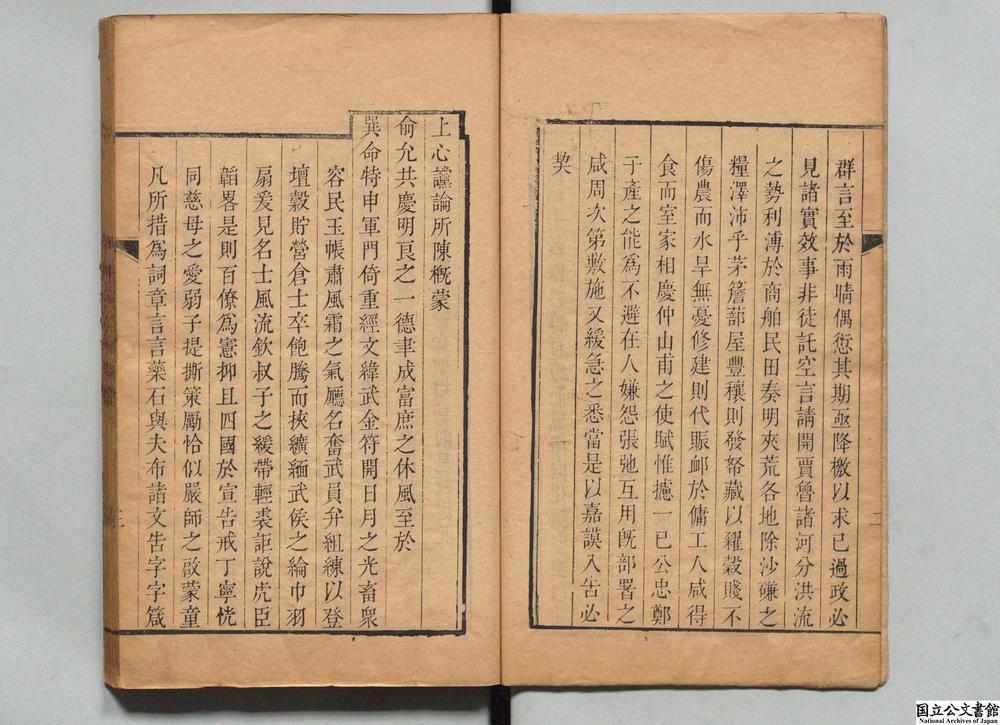 群言至於雨晴偶愆其期亟降檄以求已過政必
見諸實效事非徒託空言請開賈魯諸河分洪流
之勢利溥於商舶民田奏明夾荒各地除沙磏之
糧澤沛乎茅簷蔀屋豐穰則發帑藏以糴穀賤不
傷農而水旱無憂修建則代賑卹於傭工人咸得
食而室家相慶仲山甫之使賦惟攄一己公忠鄭
子產之能為不避在人嫌怨張弛互用既部署之
咸周次第敷施又緩急之悉當是以嘉謨入告必
契
上心讜論所陳概蒙
俞允共慶明良之一德聿成富庶之休風至於
巽命特申軍門倚重經文緯武金符開日月之光畜衆
容民玉帳肅風霜之氣廳名奮武員弁組練以登
壇穀貯營倉士卒飽騰而挾纊緬武侯之綸巾羽
扇爰見名士風流欽叔子之緩帶輕裘詎說虎臣
韜畧是則百僚為憲抑且四國於宣告戒丁寧恍
同慈母之愛弱子提撕策勵恰似嚴師之啟蒙童
凡所措為詞章言言藥石與夫布諸文告字字箴
二
三
国立公文書館
National Archives of Japan